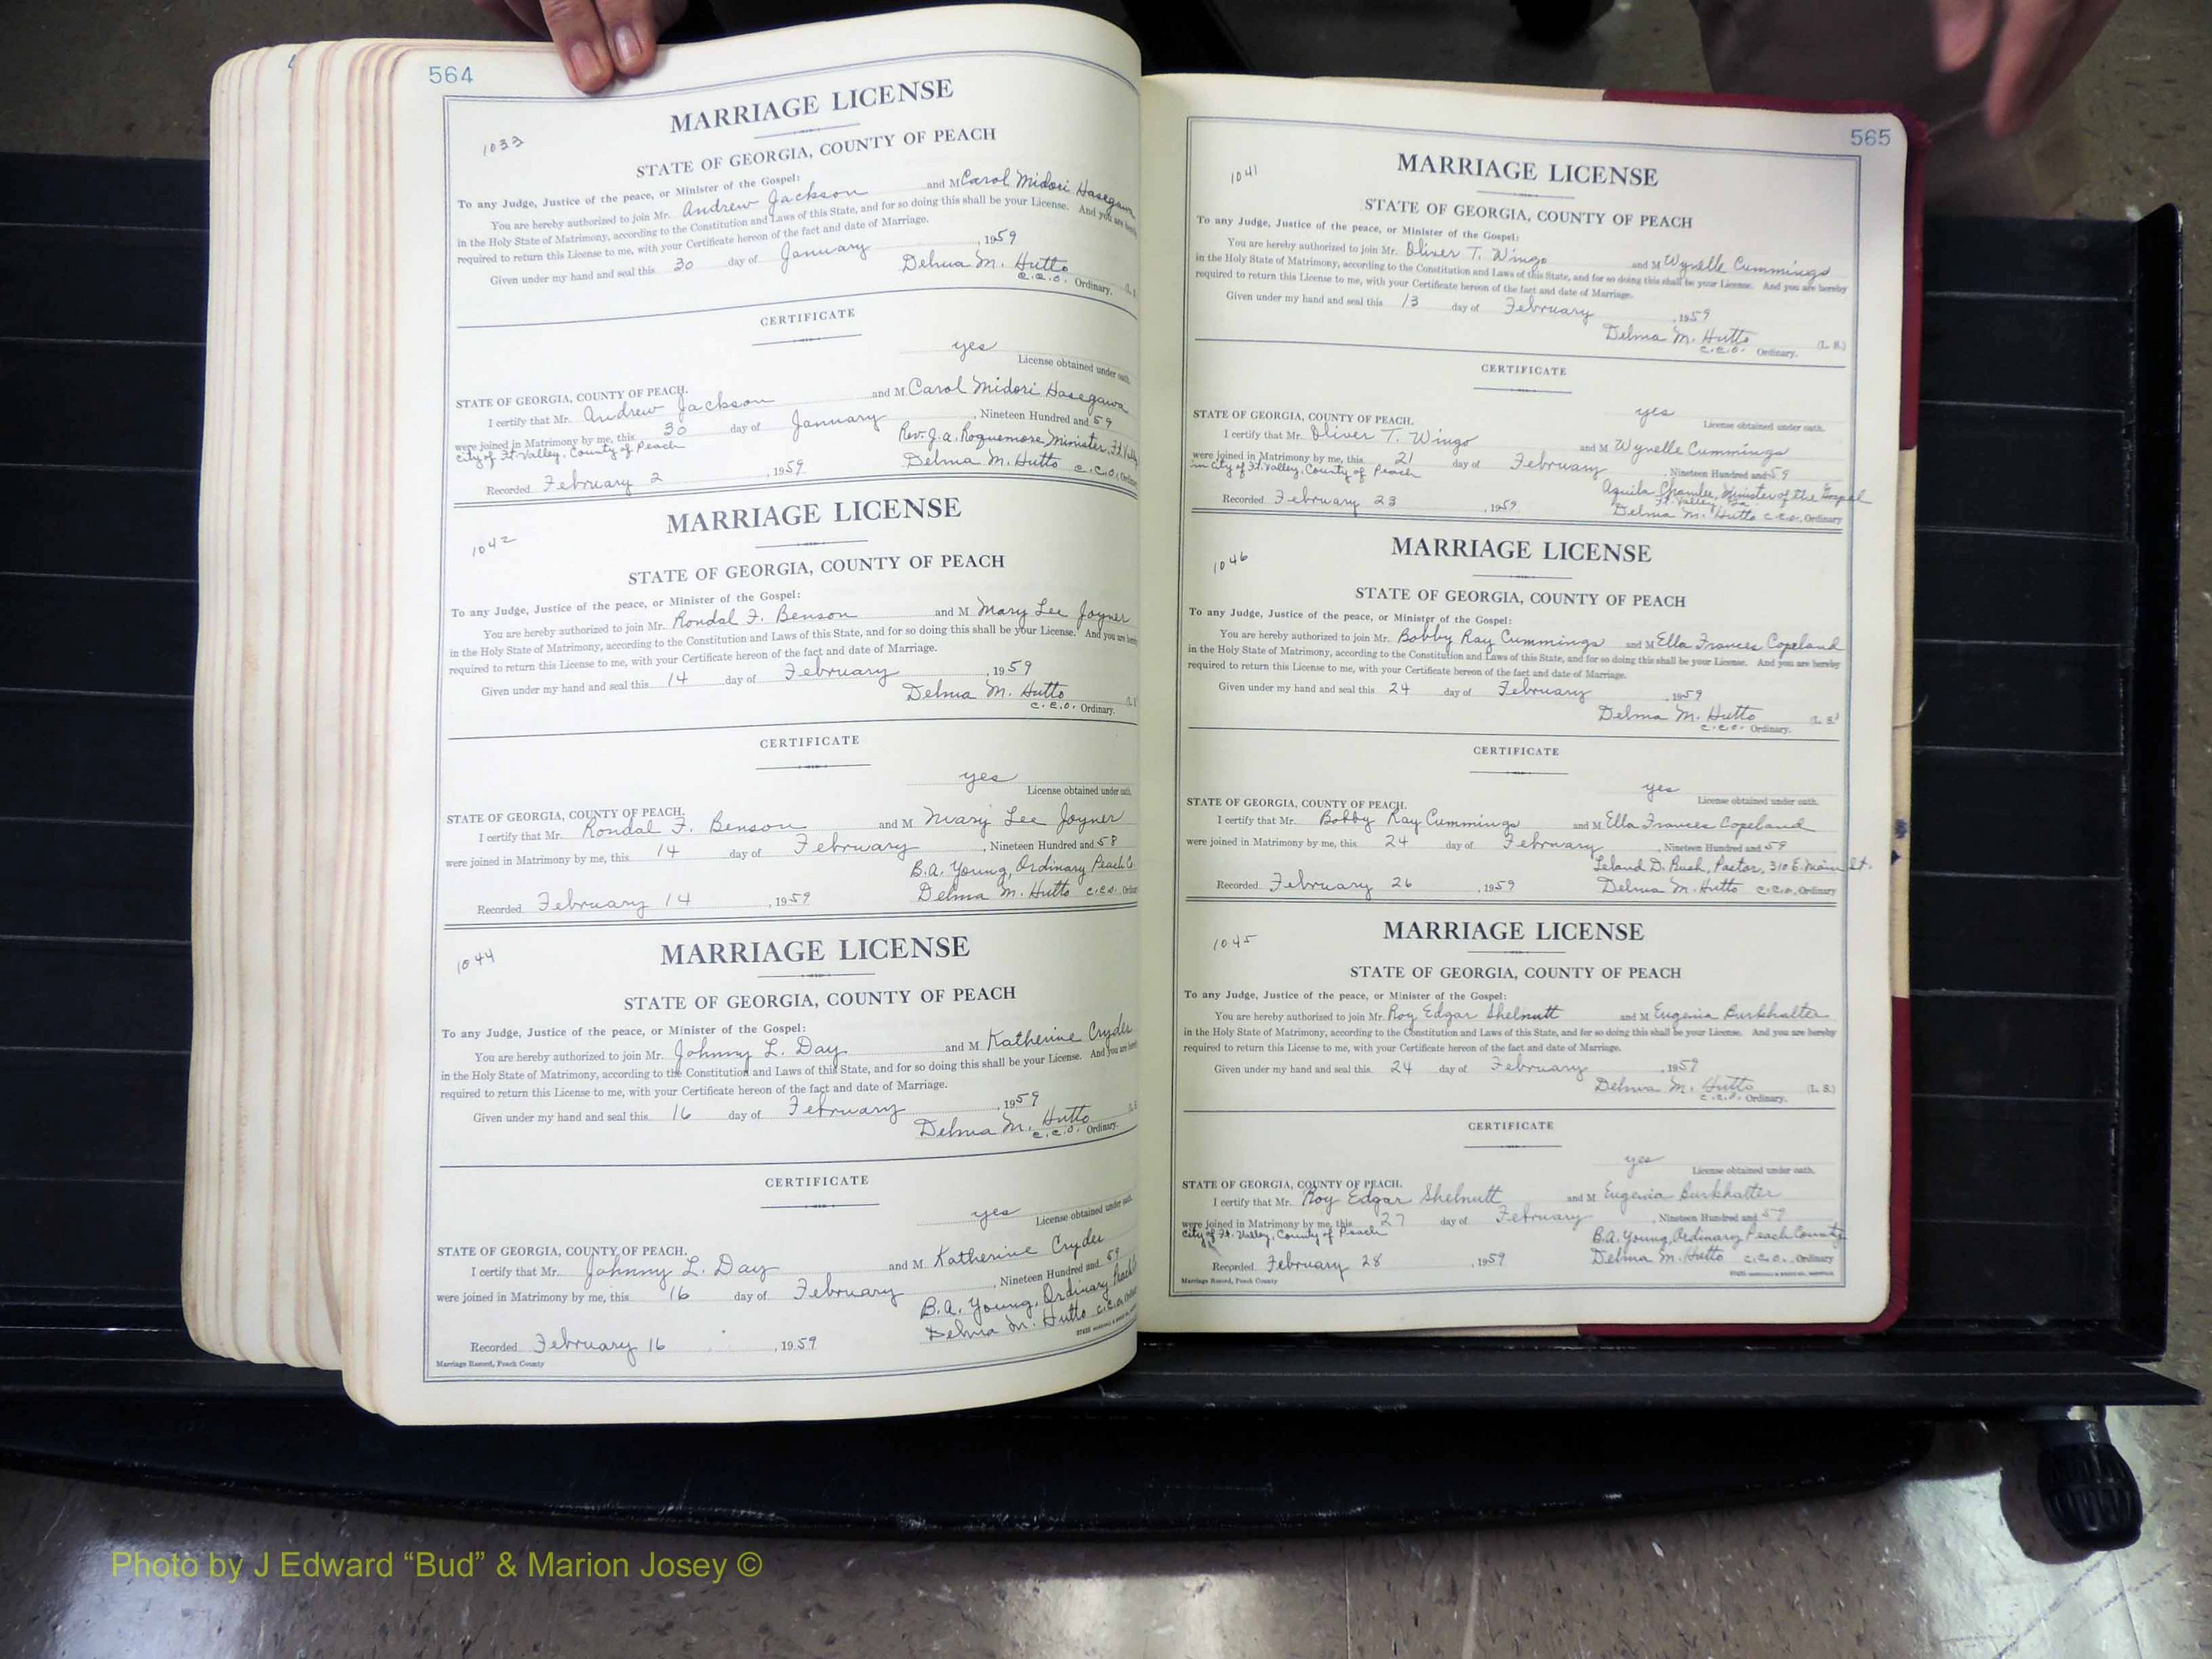 564
1033
MARRIAGE LICENSE
STATE OF GEORGIA, COUNTY OF PEACH
To any Judge, Justice of the peace, or Minister of the Gospel:
You are hereby authorized to join Mr. Andrew Jackson and M Carol Midori Hasegawa
in the Holy State of Matrimony, according to the Constitution and Laws of this State, and for so doing this shall be your License. And you are hereby
required to return this License to me, with your Certificate hereon of the fact and date of Marriage.
Given under my hand and seal this 30 day of January, 1959
Delma M. Hutto
C.C.O. Ordinary.
CERTIFICATE
yes
License obtained under oath.
STATE OF GEORGIA, COUNTY OF PEACH.
I certify that Mr. Andrew Jackson and M. Carol Midori Hasegawa
were joined in Matrimony by me, this 30 day of January, Nineteen Hundred and 59
City of Ft. Valley, County of Peach
Rev. J.A. Roquemore, Minister, Ft. Valley
Delma M. Hutto C.C.O., Ordinary
Recorded February 2, 1959
1042
MARRIAGE LICENSE
STATE OF GEORGIA, COUNTY OF PEACH
To any Judge, Justice of the peace, or Minister of the Gospel:
You are hereby authorized to join Mr. Rondal F. Benson and M Mary Lee Joyner
in the Holy State of Matrimony, according to the Constitution and Laws of this State, and for so doing this shall be your License. And you are hereby
required to return this License to me, with your Certificate hereon of the fact and date of Marriage.
Given under my hand and seal this 14 day of February, 1959
Delma M. Hutto
C.C.O. Ordinary.
CERTIFICATE
yes
License obtained under oath.
STATE OF GEORGIA, COUNTY OF PEACH.
I certify that Mr. Rondal F. Benson and M Mary Lee Joyner
were joined in Matrimony by me, this 14 day of February, Nineteen Hundred and 58
B.A. Young, Ordinary Peach Co
Delma M. Hutto C.C.O. Ordinary
Recorded February 14, 1959
1044
MARRIAGE LICENSE
STATE OF GEORGIA, COUNTY OF PEACH
To any Judge, Justice of the peace, or Minister of the Gospel:
You are hereby authorized to join Mr. Johnny L. Day and M Katherine Cryder
in the Holy State of Matrimony, according to the Constitution and Laws of this State, and for so doing this shall be your License. And you are hereby
required to return this License to me, with your Certificate hereon of the fact and date of Marriage.
Given under my hand and seal this 16 day of February, 1959
Delma M. Hutto
C.C.O. Ordinary.
CERTIFICATE
yes
License obtained under oath.
STATE OF GEORGIA, COUNTY OF PEACH.
I certify that Mr. Johnny L. Day and M Katherine Cryder
were joined in Matrimony by me, this 16 day of February, Nineteen Hundred and 59
B.A. Young, Ordinary Peach
Delma M. Hutto C.C.O., Ordinary
Recorded February 16, 1959
Marriage Record, Peach County
565
1041
MARRIAGE LICENSE
STATE OF GEORGIA, COUNTY OF PEACH
To any Judge, Justice of the peace, or Minister of the Gospel:
You are hereby authorized to join Mr. Oliver T. Wingo and M Wynelle Cummings
in the Holy State of Matrimony, according to the Constitution and Laws of this State, and for so doing this shall be your License. And you are hereby
required to return this License to me, with your Certificate hereon of the fact and date of Marriage.
Given under my hand and seal this 13 day of February, 1959
Delma M. Hutto (L. S.)
C.C.O. Ordinary.
CERTIFICATE
yes
License obtained under oath.
STATE OF GEORGIA, COUNTY OF PEACH.
I certify that Mr. Oliver T. Wingo and M Wynelle Cummings
were joined in Matrimony by me, this 21 day of February, Nineteen Hundred and 59
in City of Ft. Valley, County of Peach
Aquila Chamlee, Minister of the Gospel
Ft. Valley, Ga.
Recorded February 23, 1959
Delma M. Hutto C.C.O., Ordinary
1046
MARRIAGE LICENSE
STATE OF GEORGIA, COUNTY OF PEACH
To any Judge, Justice of the peace, or Minister of the Gospel:
You are hereby authorized to join Mr. Bobby Ray Cummings and M Ella Frances Copeland
in the Holy State of Matrimony, according to the Constitution and Laws of this State, and for so doing this shall be your License. And you are hereby
required to return this License to me, with your Certificate hereon of the fact and date of Marriage.
Given under my hand and seal this 24 day of February, 1959
Delma M. Hutto (L. S.)
C.C.O. Ordinary.
CERTIFICATE
yes
License obtained under oath.
STATE OF GEORGIA, COUNTY OF PEACH.
I certify that Mr. Bobby Ray Cummings and M Ella Frances Copeland
were joined in Matrimony by me, this 24 day of February, Nineteen Hundred and 59
Leland D. Rush, Pastor, 310 E. Main St.
Recorded February 26, 1959
Delma M. Hutto C.C.O., Ordinary
1045
MARRIAGE LICENSE
STATE OF GEORGIA, COUNTY OF PEACH
To any Judge, Justice of the peace, or Minister of the Gospel:
You are hereby authorized to join Mr. Roy Edgar Shelnutt and M Eugenia Burkhalter
in the Holy State of Matrimony, according to the Constitution and Laws of this State, and for so doing this shall be your License. And you are hereby
required to return this License to me, with your Certificate hereon of the fact and date of Marriage.
Given under my hand and seal this 24 day of February, 1959
Delma M. Hutto (L. S.)
C.C.O. Ordinary.
CERTIFICATE
yes
License obtained under oath.
STATE OF GEORGIA, COUNTY OF PEACH.
I certify that Mr. Roy Edgar Shelnutt and M Eugenia Burkhalter
were joined in Matrimony by me, this 27 day of February, Nineteen Hundred and 59
City of Ft. Valley, County of Peach
B.A. Young, Ordinary Peach County
Delma M. Hutto C.C.O., Ordinary
Recorded February 28, 1959
Marriage Record, Peach County
Photo by J Edward “Bud” & Marion Josey ©